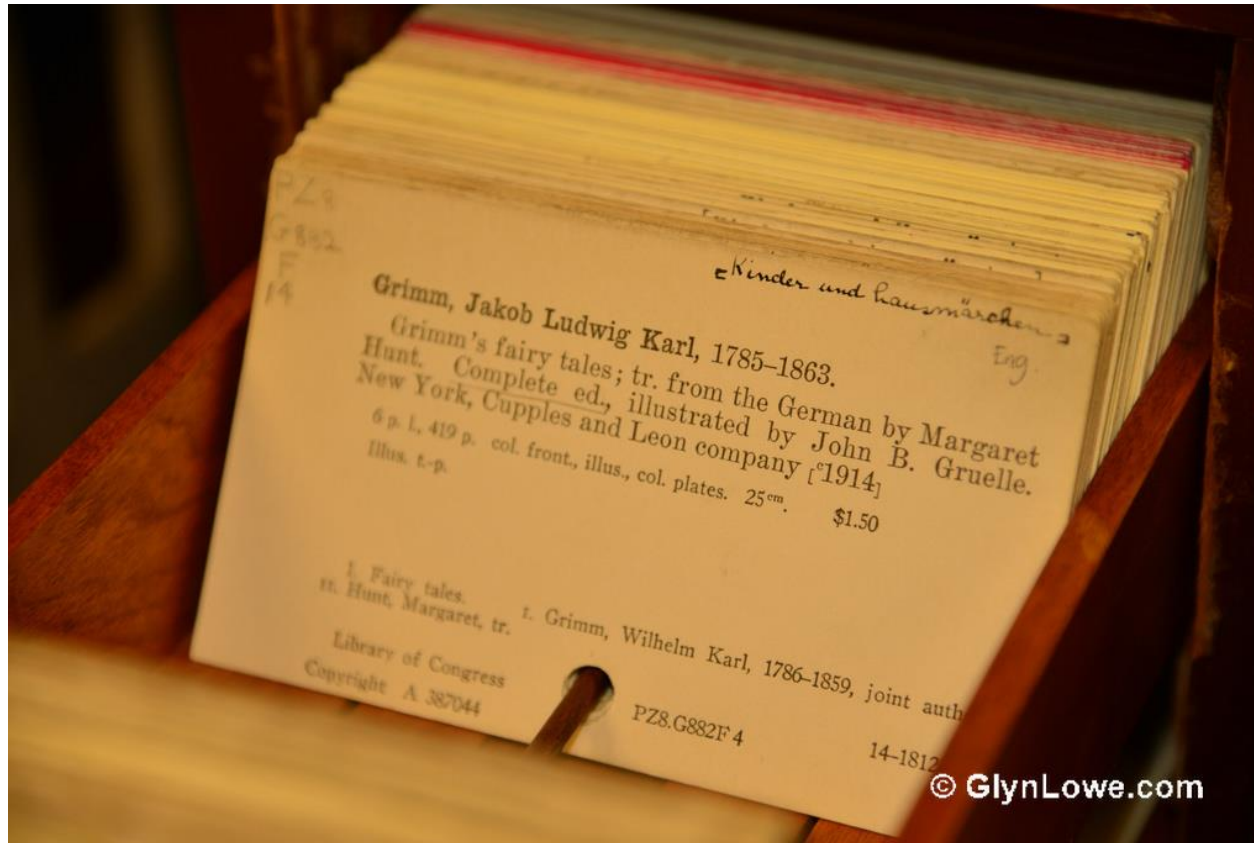 PZ8
G882
F
14
[Kinder und hausmärchen]
Eng.
Grimm, Jakob Ludwig Karl, 1785–1863.
Grimm's fairy tales; tr. from the German by Margaret
Hunt. Complete ed., illustrated by John B. Gruelle.
New York, Cupples and Leon company [ᶜ1914]
6 p. l., 419 p. col. front., illus., col. plates. 25ᶜᵐ. $1.50
Illus. t.-p.
1. Fairy tales. I. Grimm, Wilhelm Karl, 1786–1859, joint auth
II. Hunt, Margaret, tr.
Library of Congress PZ8.G882F 4
Copyright A 387044 14–1812
© GlynLowe.com